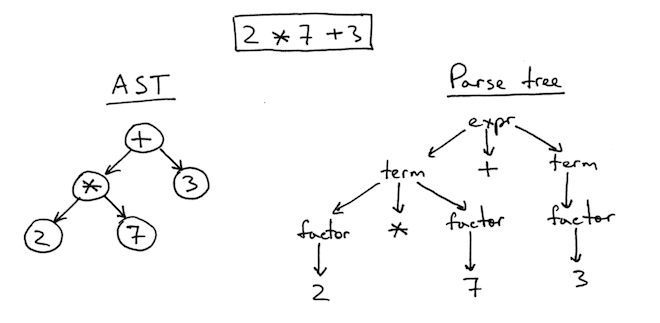 2 * 7 + 3
AST
Parse tree
+
expr
*
3
term
+
term
2
7
factor
*
factor
factor
2
7
3